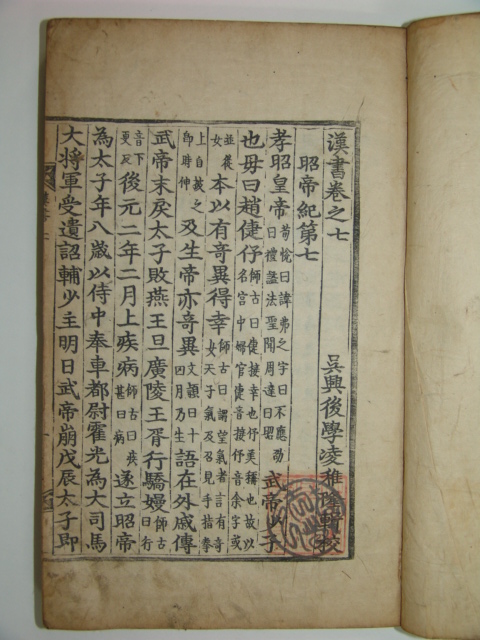 漢書卷之七
吳興後學凌稚隆輯校
昭帝紀第七
孝昭皇帝荀悅曰諱弗之字曰不應劭曰禮謚法聖聞周達曰昭武帝少子
也母曰趙倢伃師古曰倢接幸也伃美稱也故以名宮中婦官倢音接伃音余字或
並從本以有奇異得幸師古曰謂望氣者言有奇女天子氣及召見手指拳
上自披之即時伸及生帝亦奇異文穎曰十四月乃生語在外戚傳
武帝末戾太子敗燕王旦廣陵王胥行驕嫚師古曰行
音下更反後元二年二月上疾病師古曰疾甚曰病遂立昭帝
為太子年八歲以侍中奉車都尉霍光為大司馬
大將軍受遺詔輔少主明日武帝崩戊辰太子即